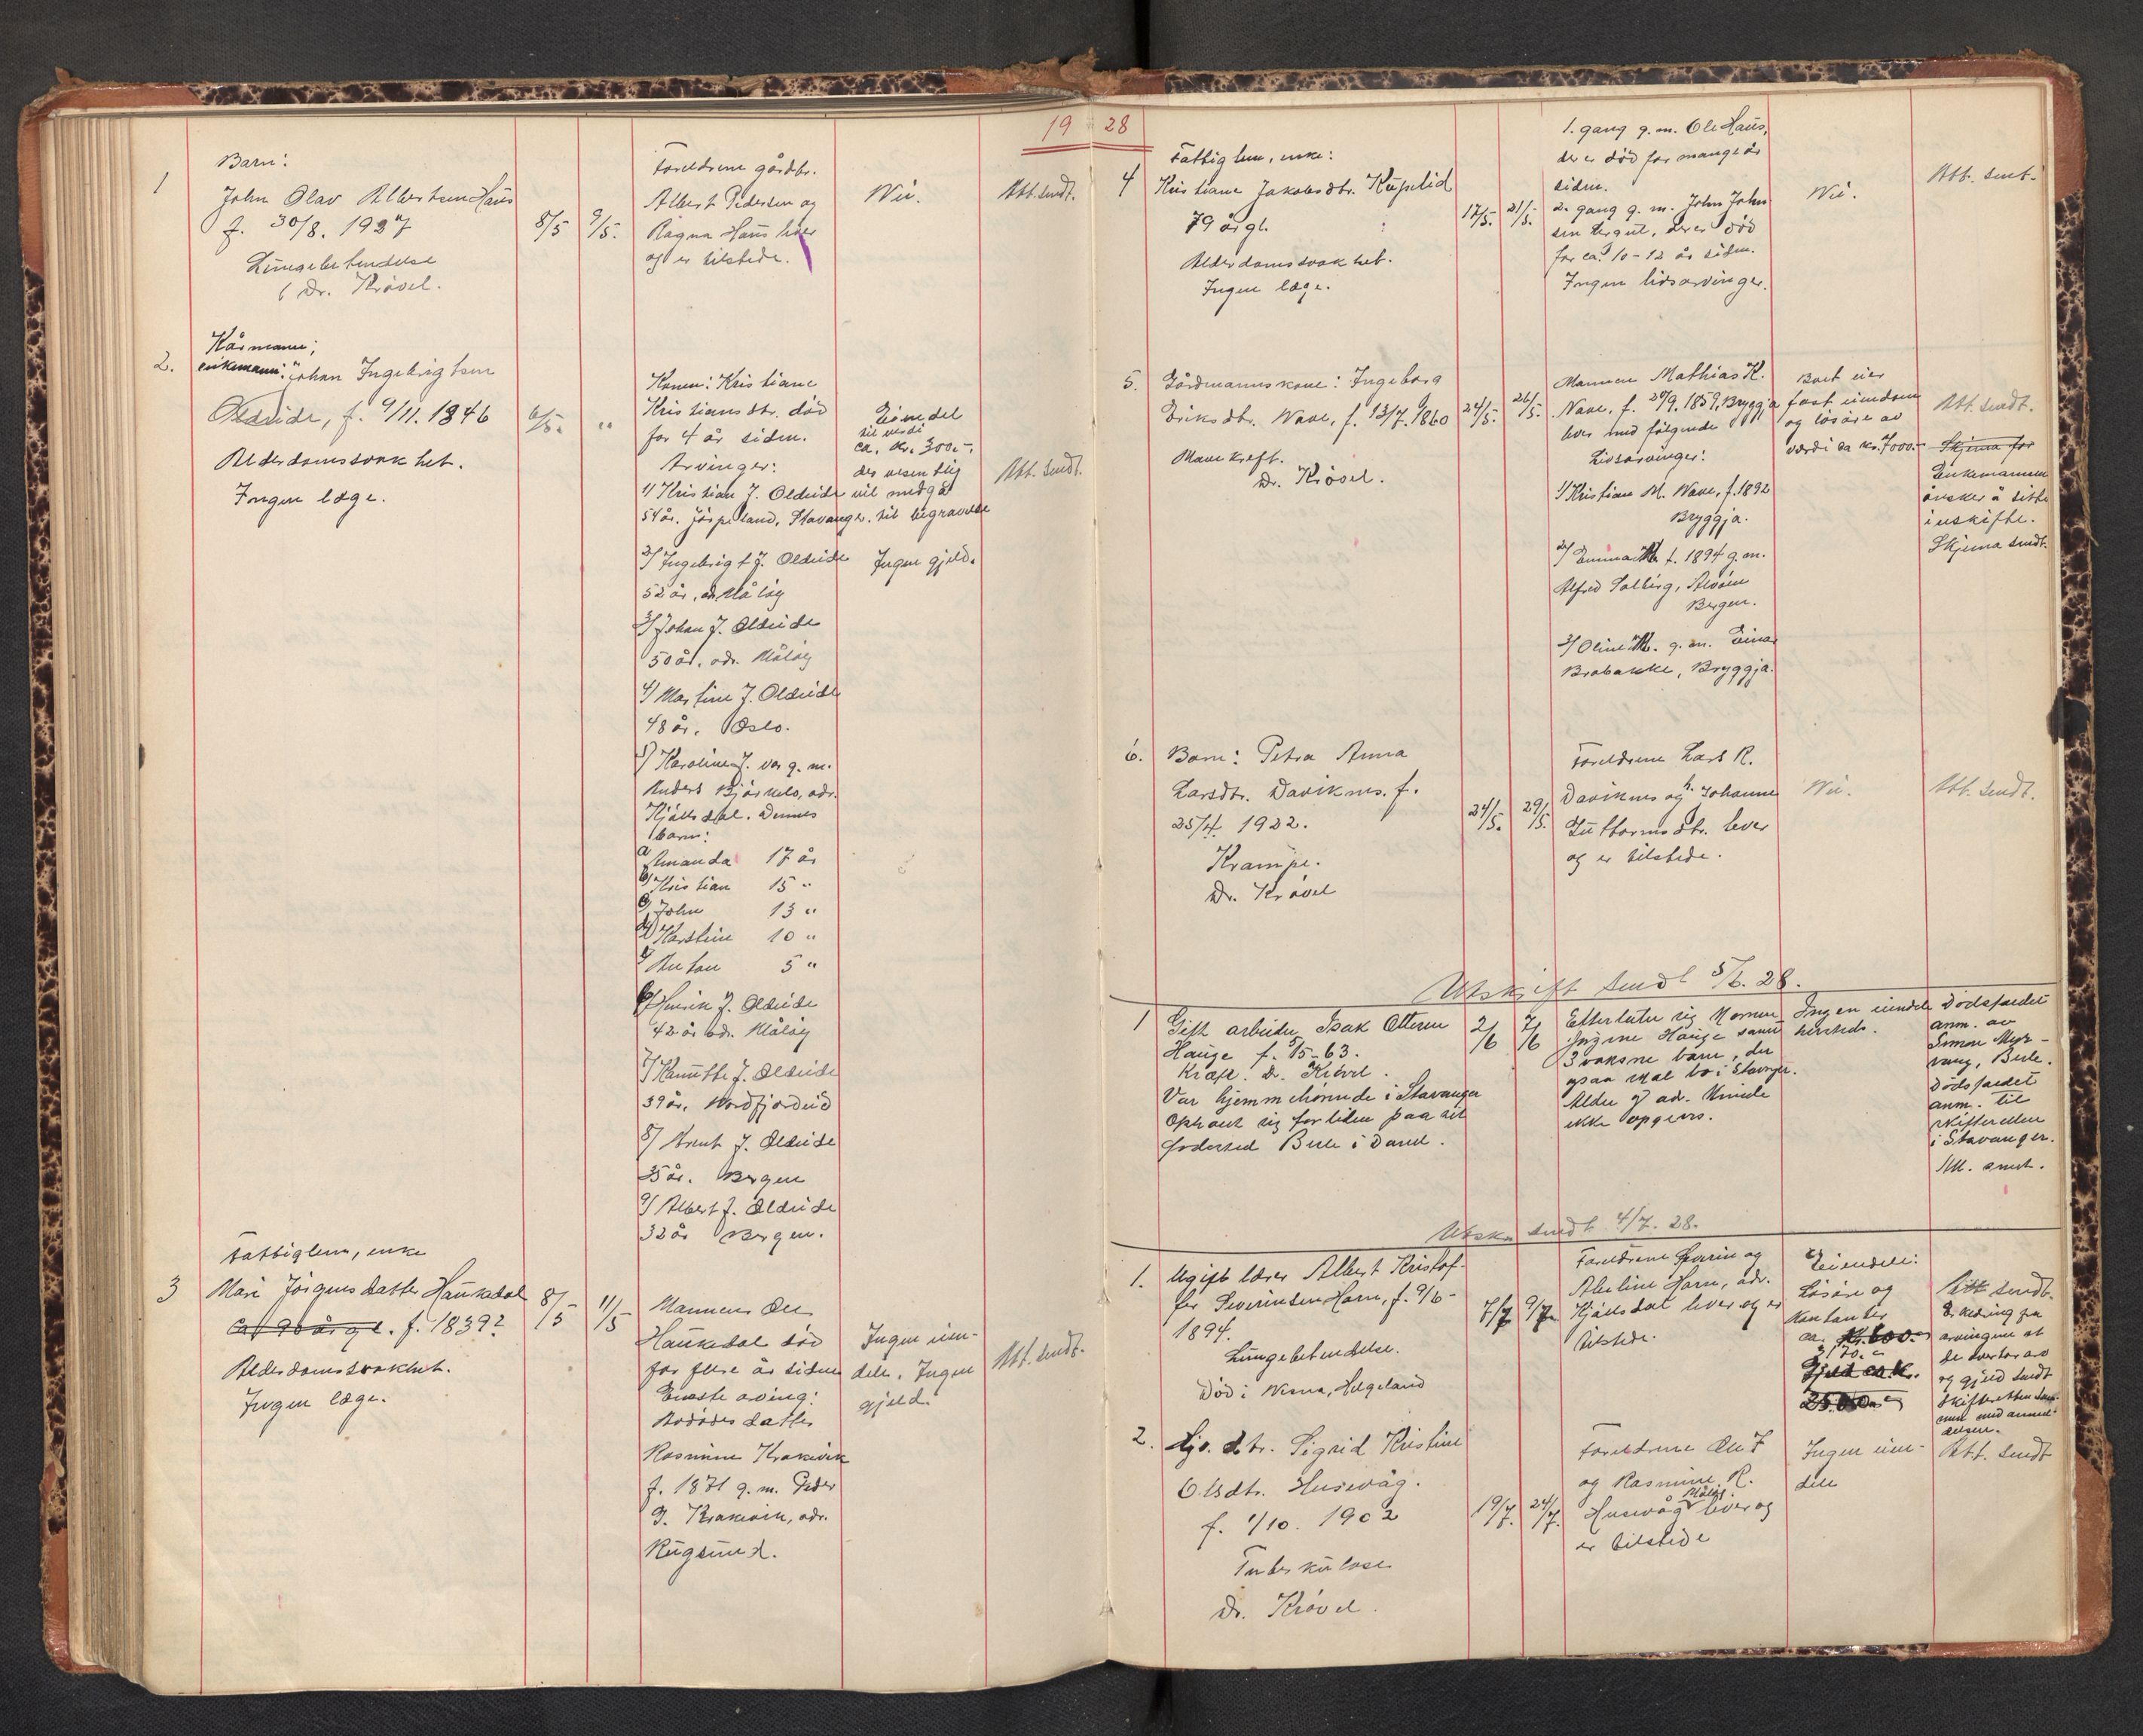 19 28
1
Barn:
John Olav Albertsen Haus
f. 30/8. 1927
Lungebetendelse
Dr. Krövel.
8/5
9/5.
Foreldrene gårdbr.
Albert Pedersen og
Ragna Haus lever
og er tilstede.
Nei.
Att. sendt.
2.
Kårmann,
enkemann: Johan Ingebrigtsen
Oldeide, f. 9/11. 1846
Alderdomssvakhet.
Ingen læge.
6/5.
"
Konen: Kristiane
Kristiansdtr. död
for 4 år siden.
Arvinger:
1/ Kristian J. Oldeide
54 år. Jörpeland, Stavanger.
2/ Ingebrigt J. Oldeide
52 år, adr. Målöy
3/ Johan J. Oldeide
50 år, adr. Målöy
4/ Martine J. Oldeide
48 år. Oslo.
5/ Karoline J. var g. m.
Anders Bjørkelo, adr.
Hjålsdal. Dennes
barn:
a Amanda 17 år
b/ Kristian 15 "
c/ John 13 "
d/ Karstine 10 "
e/ Anton 5 "
J. Oldeide
42 år adr. Målöy
7/ J. Oldeide
39 år. Nordfjordeid
8/ Bernt J. Oldeide
35 år. Bergen
9/ Albert J. Oldeide
32 år Bergen.
Eiendel
til verdi
ca. kr. 300.-,
der vesentlig
vil medgå
til begravelse
Ingen gjeld.
Att. sendt.
3
Fattiglem, enke
Mari Jörgensdatter Haukedal
ca 90 år gl. f. 1839?
Alderdomssvakhet.
Ingen læge.
8/5
11/5
Mannen Ole
Haukedal död
for flere år siden
Eneste arving:
datter
Rasmine Krakevik
f. 1871 g. m. Peder
Krakevik, adr.
Rugsund.
Ingen eien-
dele. Ingen
gjeld.
Att. sendt.
4
Fattiglem, enke:
Kristiane Jakobsdtr. Kupelid
79 år gl.
Alderdomssvakhet.
Ingen læge.
17/5.
21/5.
1. gang g. m. Ole Haus,
der er död for mange år
siden.
2. gang g. m. John John-
sen der er död
for ca. 10-12 år siden.
Ingen livsarvinger.
Nei.
Att. sent.
5.
Gårdmannskone: Ingeborg
Eriksdtr. Nave, f. 13/7. 1860
Mavekreft.
Dr. Krövel.
24/5.
26/5.
Mannen Mathias K.
Nave, f. 20/9. 1859, Bryggja
lever med fölgende
Livsarvinger:
1/ Kristian M. Nave, f. 1892
Bryggja.
2/ Emma f. 1894 g. m.
Alfred Solberg, Alvöen
Bergen.
3/ Oline g. m. Einar
Brobakke, Bryggja.
Boet eier
fast eiendom
og lösöre av
værdi ca kr. 7000.-
Att. sendt.
Skjema for
Enkemannen
önsker å sitte
i uskifte.
Skjema sendt.
6.
Barn: Petra Anna
Larsdtr. Daviknes. f.
25/4. 1922.
Krampe.
Dr. Krövel
24/5.
29/5.
Foreldrene Lars R.
Daviknes og h. Johanne
Guttormsdtr. lever
og er tilstede.
Nei.
Att. sendt.
Utskrift sendt 5/6. 28.
1
Gift arbeider Isak Otteren
Hauge f. 5/5-63.
Kræft. D. Krövel.
Var hjemmehörende i Stavanger
Ophout sig for tiden paa sit
fodested Berle i Davik.
2/6
7/6
Efterlater sig Konen
Hauge samt
3 voksne barn, der
ogsaa skal bo i Stavanger.
Alder og adr. kunde
ikke opgives.
Ingen eiendele
hersteds.
Dödsfaldet
anm. av
Simon Myk-
vang, Berle.
Dödsfaldet
anm. til
skifteretten
i Stavanger.
Att. sendt.
Utskr. sendt 4/7. 28.
1.
Ugift lærer Albert Kristof-
fer Severinsen Horn, f. 9/6-
1894.
Lungebetendelse.
Död i Nesna, Helgeland
7/7
9/7
Foreldrene Severin og
Abeline Horn, adr.
Hjålsdal lever og er
tilstede.
Eiendele:
Lösöre og
kontanter
ca. kr. 600.-
3170.-
Gjeld ca. kr.
2500.-
Att. sendt.
Erklæring fra
arvingene at
de overtar arv
og gjeld sendt
Skifteretten sam-
men med anmel-
delsen.
2.
Gjv. dtr. Sigrid Kristine
Olsdtr. Husevåg.
f. 1/10. 1902
Tuberkulose
Dr. Krövel.
19/7.
24/7.
Foreldrene Ole J
og Rasmine R.
Husevåg Målöy lever og
er tilstede
Ingen eien-
dele
Att. sendt